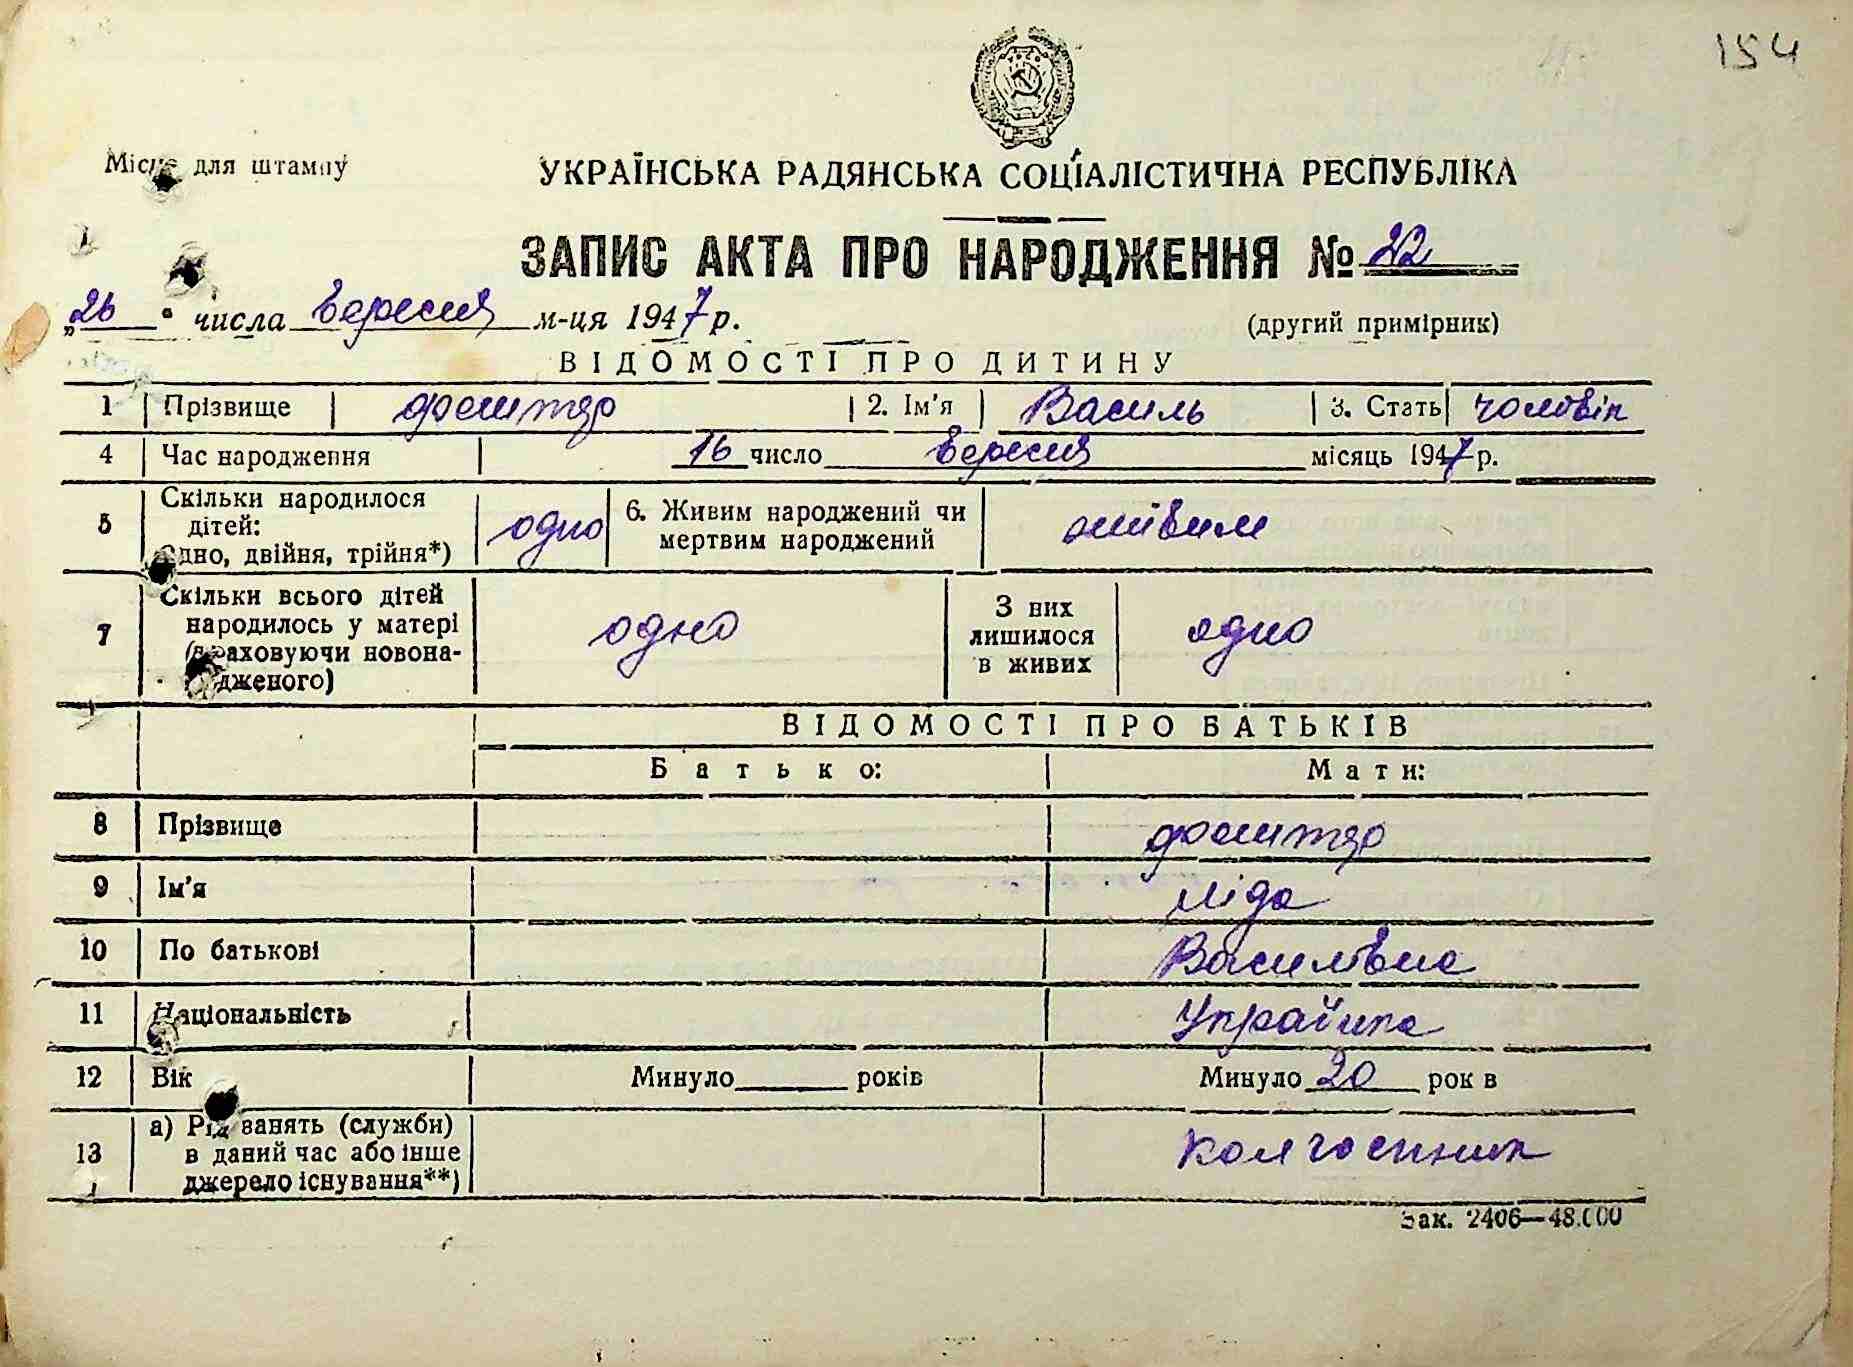 154
Місце для штампу
УКРАЇНСЬКА РАДЯНСЬКА СОЦІАЛІСТИЧНА РЕСПУБЛІКА
ЗАПИС АКТА ПРО НАРОДЖЕННЯ № 22
„26“ числа вересня м-ця 1947 р.
(другий примірник)
ВІДОМОСТІ ПРО ДИТИНУ
1 Прізвище 2. Ім'я Василь 3. Стать чоловік
4 Час народження 16 число вересня місяць 1947 р.
5 Скільки народилося дітей: одно, двійня, трійня*) одно 6. Живим народжений чи мертвим народжений живим
7 Скільки всього дітей народилось у матері (враховуючи новонародженого) одно З них лишилося в живих одно
ВІДОМОСТІ ПРО БАТЬКІВ
Батько: Мати:
8 Прізвище
9 Ім'я Ліда
10 По батькові Василівна
11 Національність Українка
12 Вік Минуло років Минуло 20 рок в
13 а) Рід занять (служби) в даний час або інше джерело існування**) Колгоспник
Зак. 2406—48.000